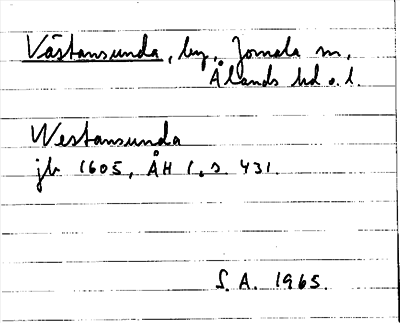 Västansunda, by, Jomala sn,
Ålands hd o. l.
Westansunda
jb 1605, ÅH 1, s. 431.
S. A. 1965.